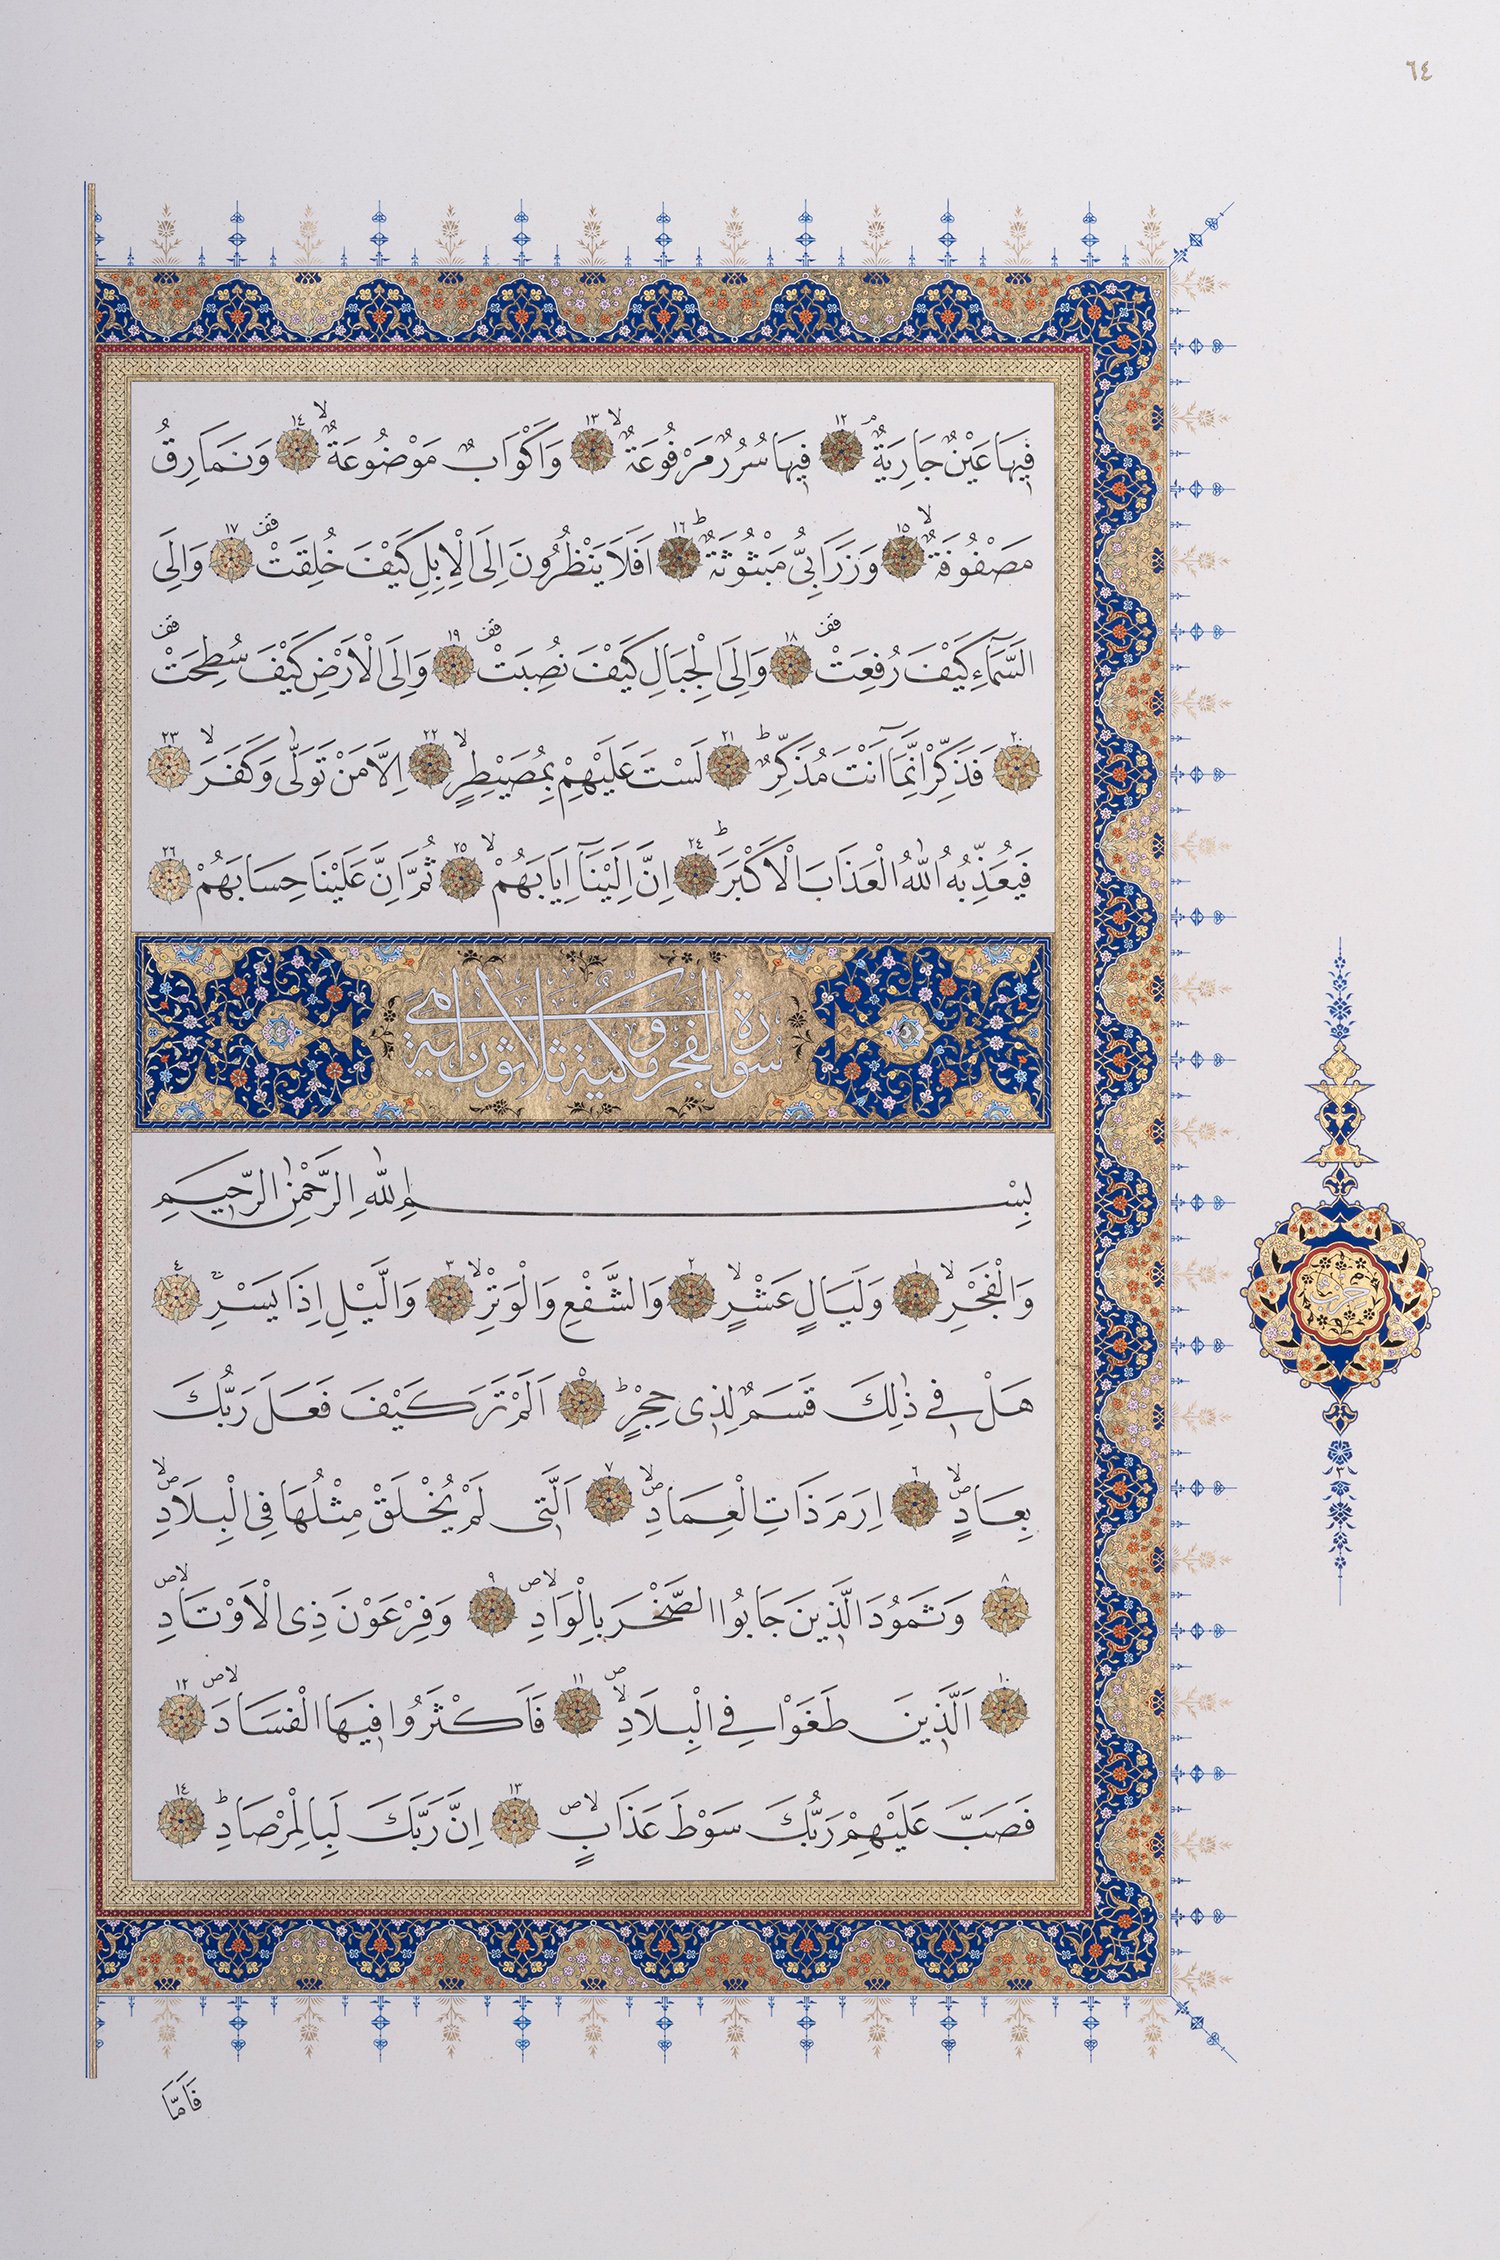 ٦٤
فِيهَا عَيْنٌ جَارِيَةٌۢ ١٢ فِيهَا سُرُرٌ مَرْفُوعَةٌۙ ١٣ وَاَكْوَابٌ مَوْضُوعَةٌۙ ١٤ وَنَمَارِقُ
مَصْفُوفَةٌۙ ١٥ وَزَرَابِيُّ مَبْثُوثَةٌۜ ١٦ اَفَلَا يَنْظُرُونَ اِلَى الْاِبِلِ كَيْفَ خُلِقَتْ۠ ١٧ وَاِلَى
السَّمَٓاءِ كَيْفَ رُفِعَتْ۠ ١٨ وَاِلَى الْجِبَالِ كَيْفَ نُصِبَتْ۠ ١٩ وَاِلَى الْاَرْضِ كَيْفَ سُطِحَتْ۠
٢٠ فَذَكِّرْ اِنَّمَٓا اَنْتَ مُذَكِّرٌۜ ٢١ لَسْتَ عَلَيْهِمْ بِمُصَيْطِرٍۙ ٢٢ اِلَّا مَنْ تَوَلّٰى وَكَفَرَۙ ٢٣
فَيُعَذِّبُهُ اللّٰهُ الْعَذَابَ الْاَكْبَرَۜ ٢٤ اِنَّ اِلَيْنَٓا اِيَابَهُمْۙ ٢٥ ثُمَّ اِنَّ عَلَيْنَا حِسَابَهُمْ ٢٦
سورة الفجر مكية وهي ثلاثون اية
بِسْمِ اللّٰهِ الرَّحْمٰنِ الرَّح۪يمِ
وَالْفَجْرِۙ ١ وَلَيَالٍ عَشْرٍۙ ٢ وَالشَّفْعِ وَالْوَتْرِۙ ٣ وَالَّيْلِ اِذَا يَسْرِۚ ٤
هَلْ ف۪ي ذٰلِكَ قَسَمٌ لِذ۪ي حِجْرٍۜ ٥ اَلَمْ تَرَ كَيْفَ فَعَلَ رَبُّكَ
بِعَادٍۙۖ ٦ اِرَمَ ذَاتِ الْعِمَادِۙۖ ٧ اَلَّت۪ي لَمْ يُخْلَقْ مِثْلُهَا فِي الْبِلَادِۙۖ
٨ وَثَمُودَ الَّذ۪ينَ جَابُوا الصَّخْرَ بِالْوَادِۙۖ ٩ وَفِرْعَوْنَ ذِي الْاَوْتَادِۙۖ
١٠ اَلَّذ۪ينَ طَغَوْا فِي الْبِلَادِۙۖ ١١ فَاَكْثَرُوا ف۪يهَا الْفَسَادَۙۖ ١٢
فَصَبَّ عَلَيْهِمْ رَبُّكَ سَوْطَ عَذَابٍۙۖ ١٣ اِنَّ رَبَّكَ لَبِالْمِرْصَادِۜ ١٤
حزب
٣
فَاَمَّا